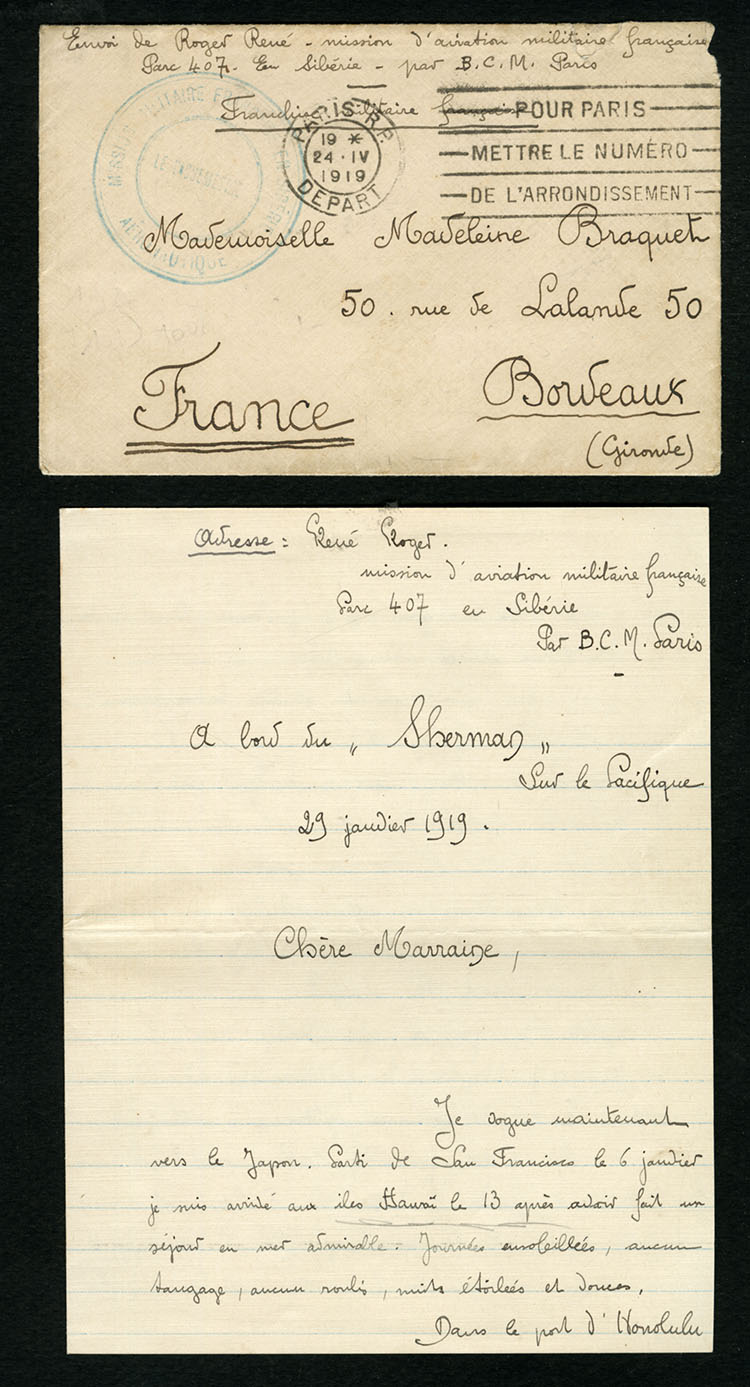 Envoi de Roger René - mission d'aviation militaire française
Parc 407. En Sibérie - par B.C.M. Paris
Franchise militaire française
PARIS R.P.
19 *
24 · IV
1919
DEPART
POUR PARIS
METTRE LE NUMÉRO
DE L'ARRONDISSEMENT
MISSION MILITAIRE
AÉRONAUTIQUE
Mademoiselle Madeleine Braquet
50. rue de Lalande 50
Bordeaux
France
(Gironde)
Adresse : René Roger.
mission d'aviation militaire française
Parc 407 en Sibérie
Par B.C.M. Paris
A bord du „ Sherman „
Sur le Pacifique
29 janvier 1919.
Chère Marraine,
Je vogue maintenant
vers le Japon. Parti de San Francisco le 6 janvier
je suis arrivé aux iles Hawaï le 13 après avoir fait un
séjour en mer admirable. Journées ensoleillées, aucun
tangage, aucun roulis, nuits étoilées et douces.
Dans le port d'Honolulu